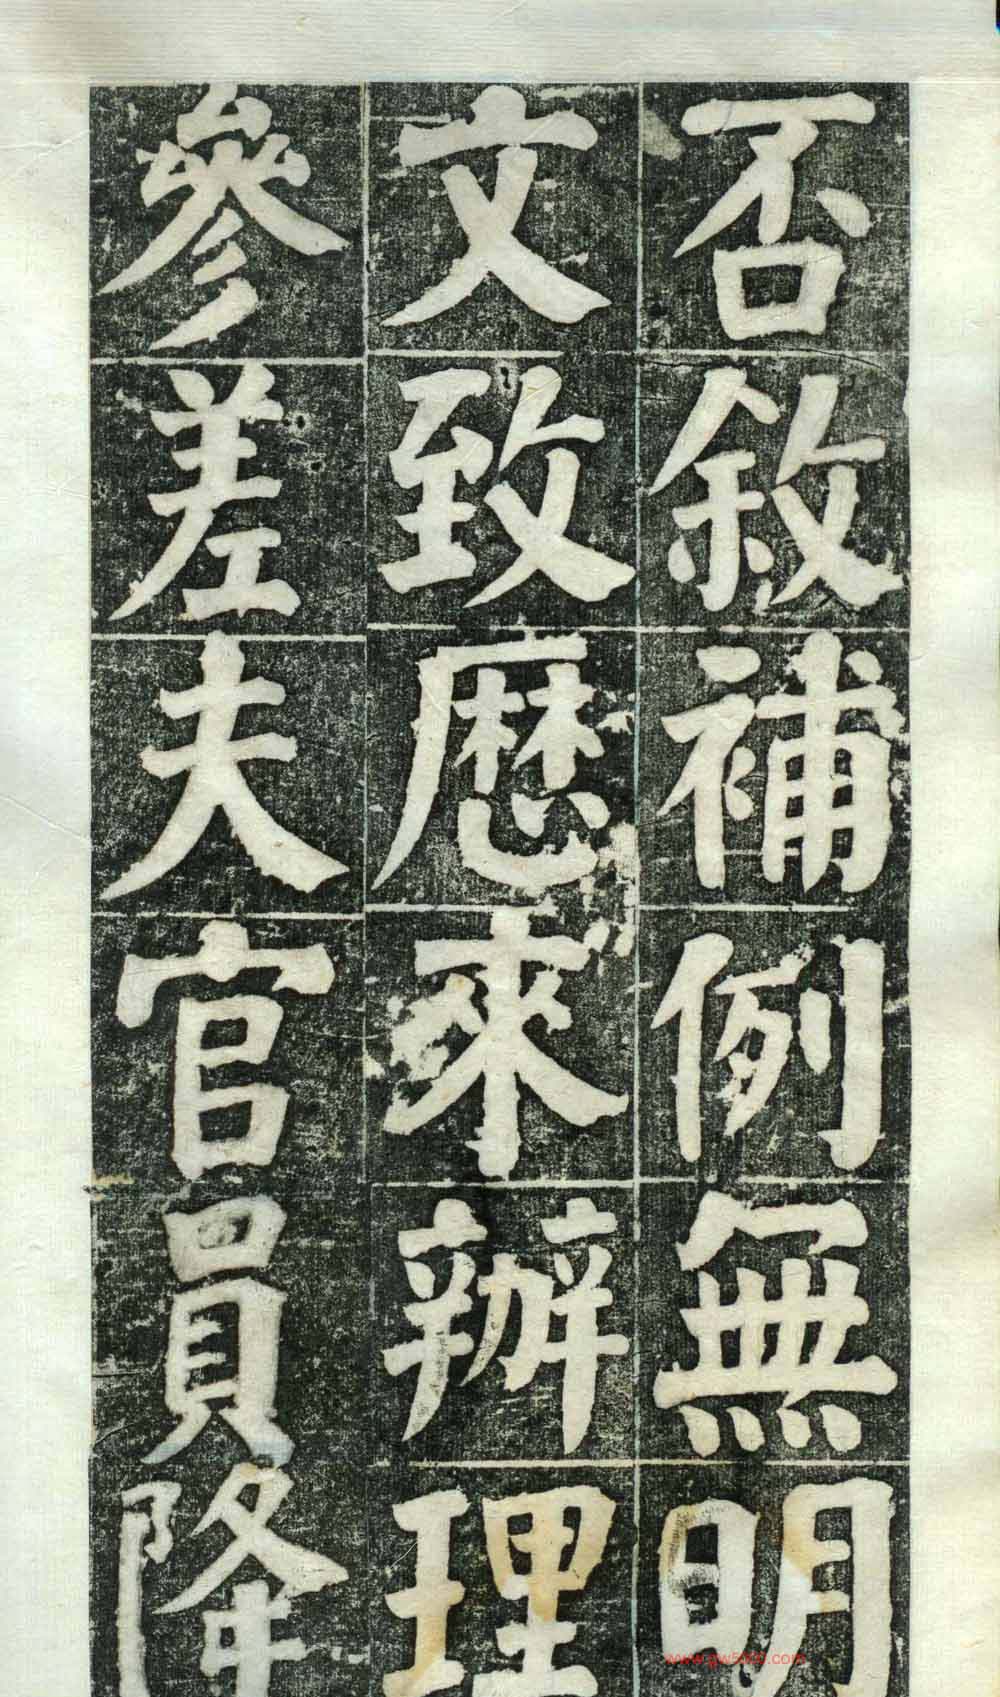 否敘補例無明
文致歷來辦理
參差夫官員降
www.gw5000.com